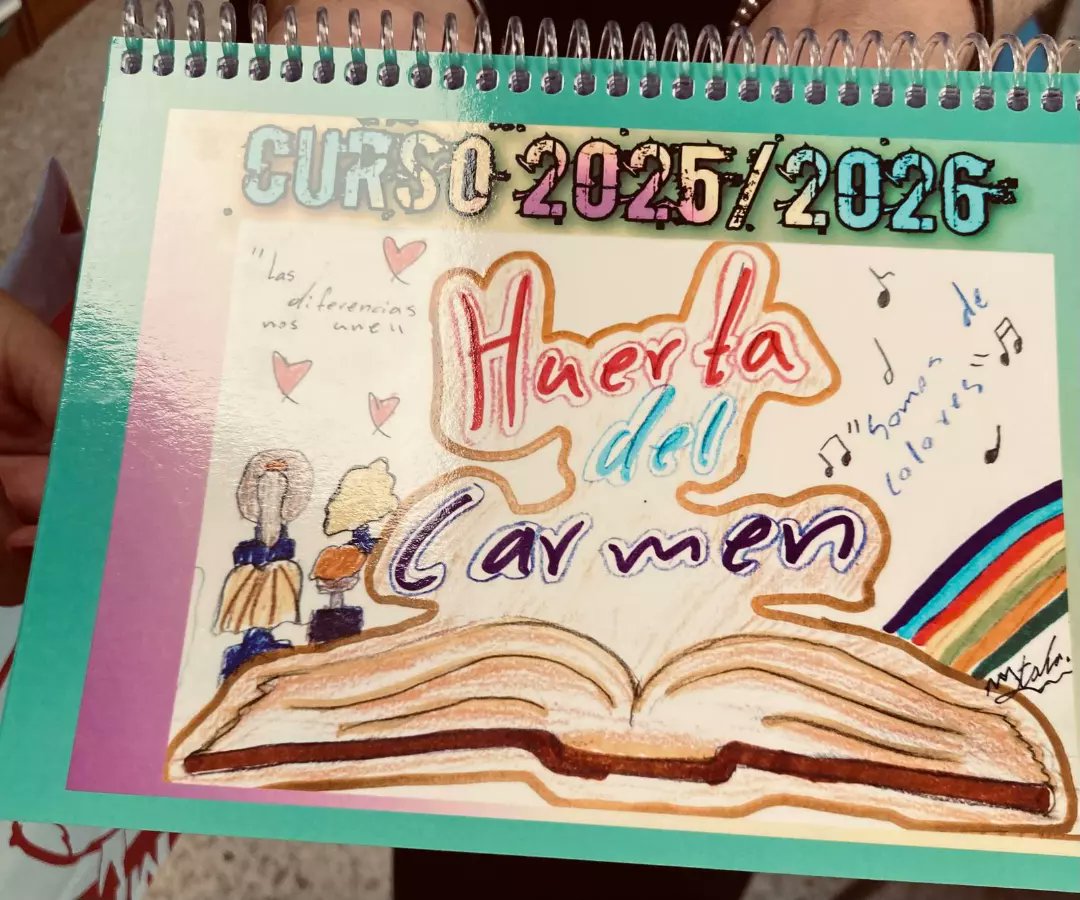 CURSO 2025/2026
"Las
diferencias
nos une"
Huerta
del
Carmen
"Somos de
colores"